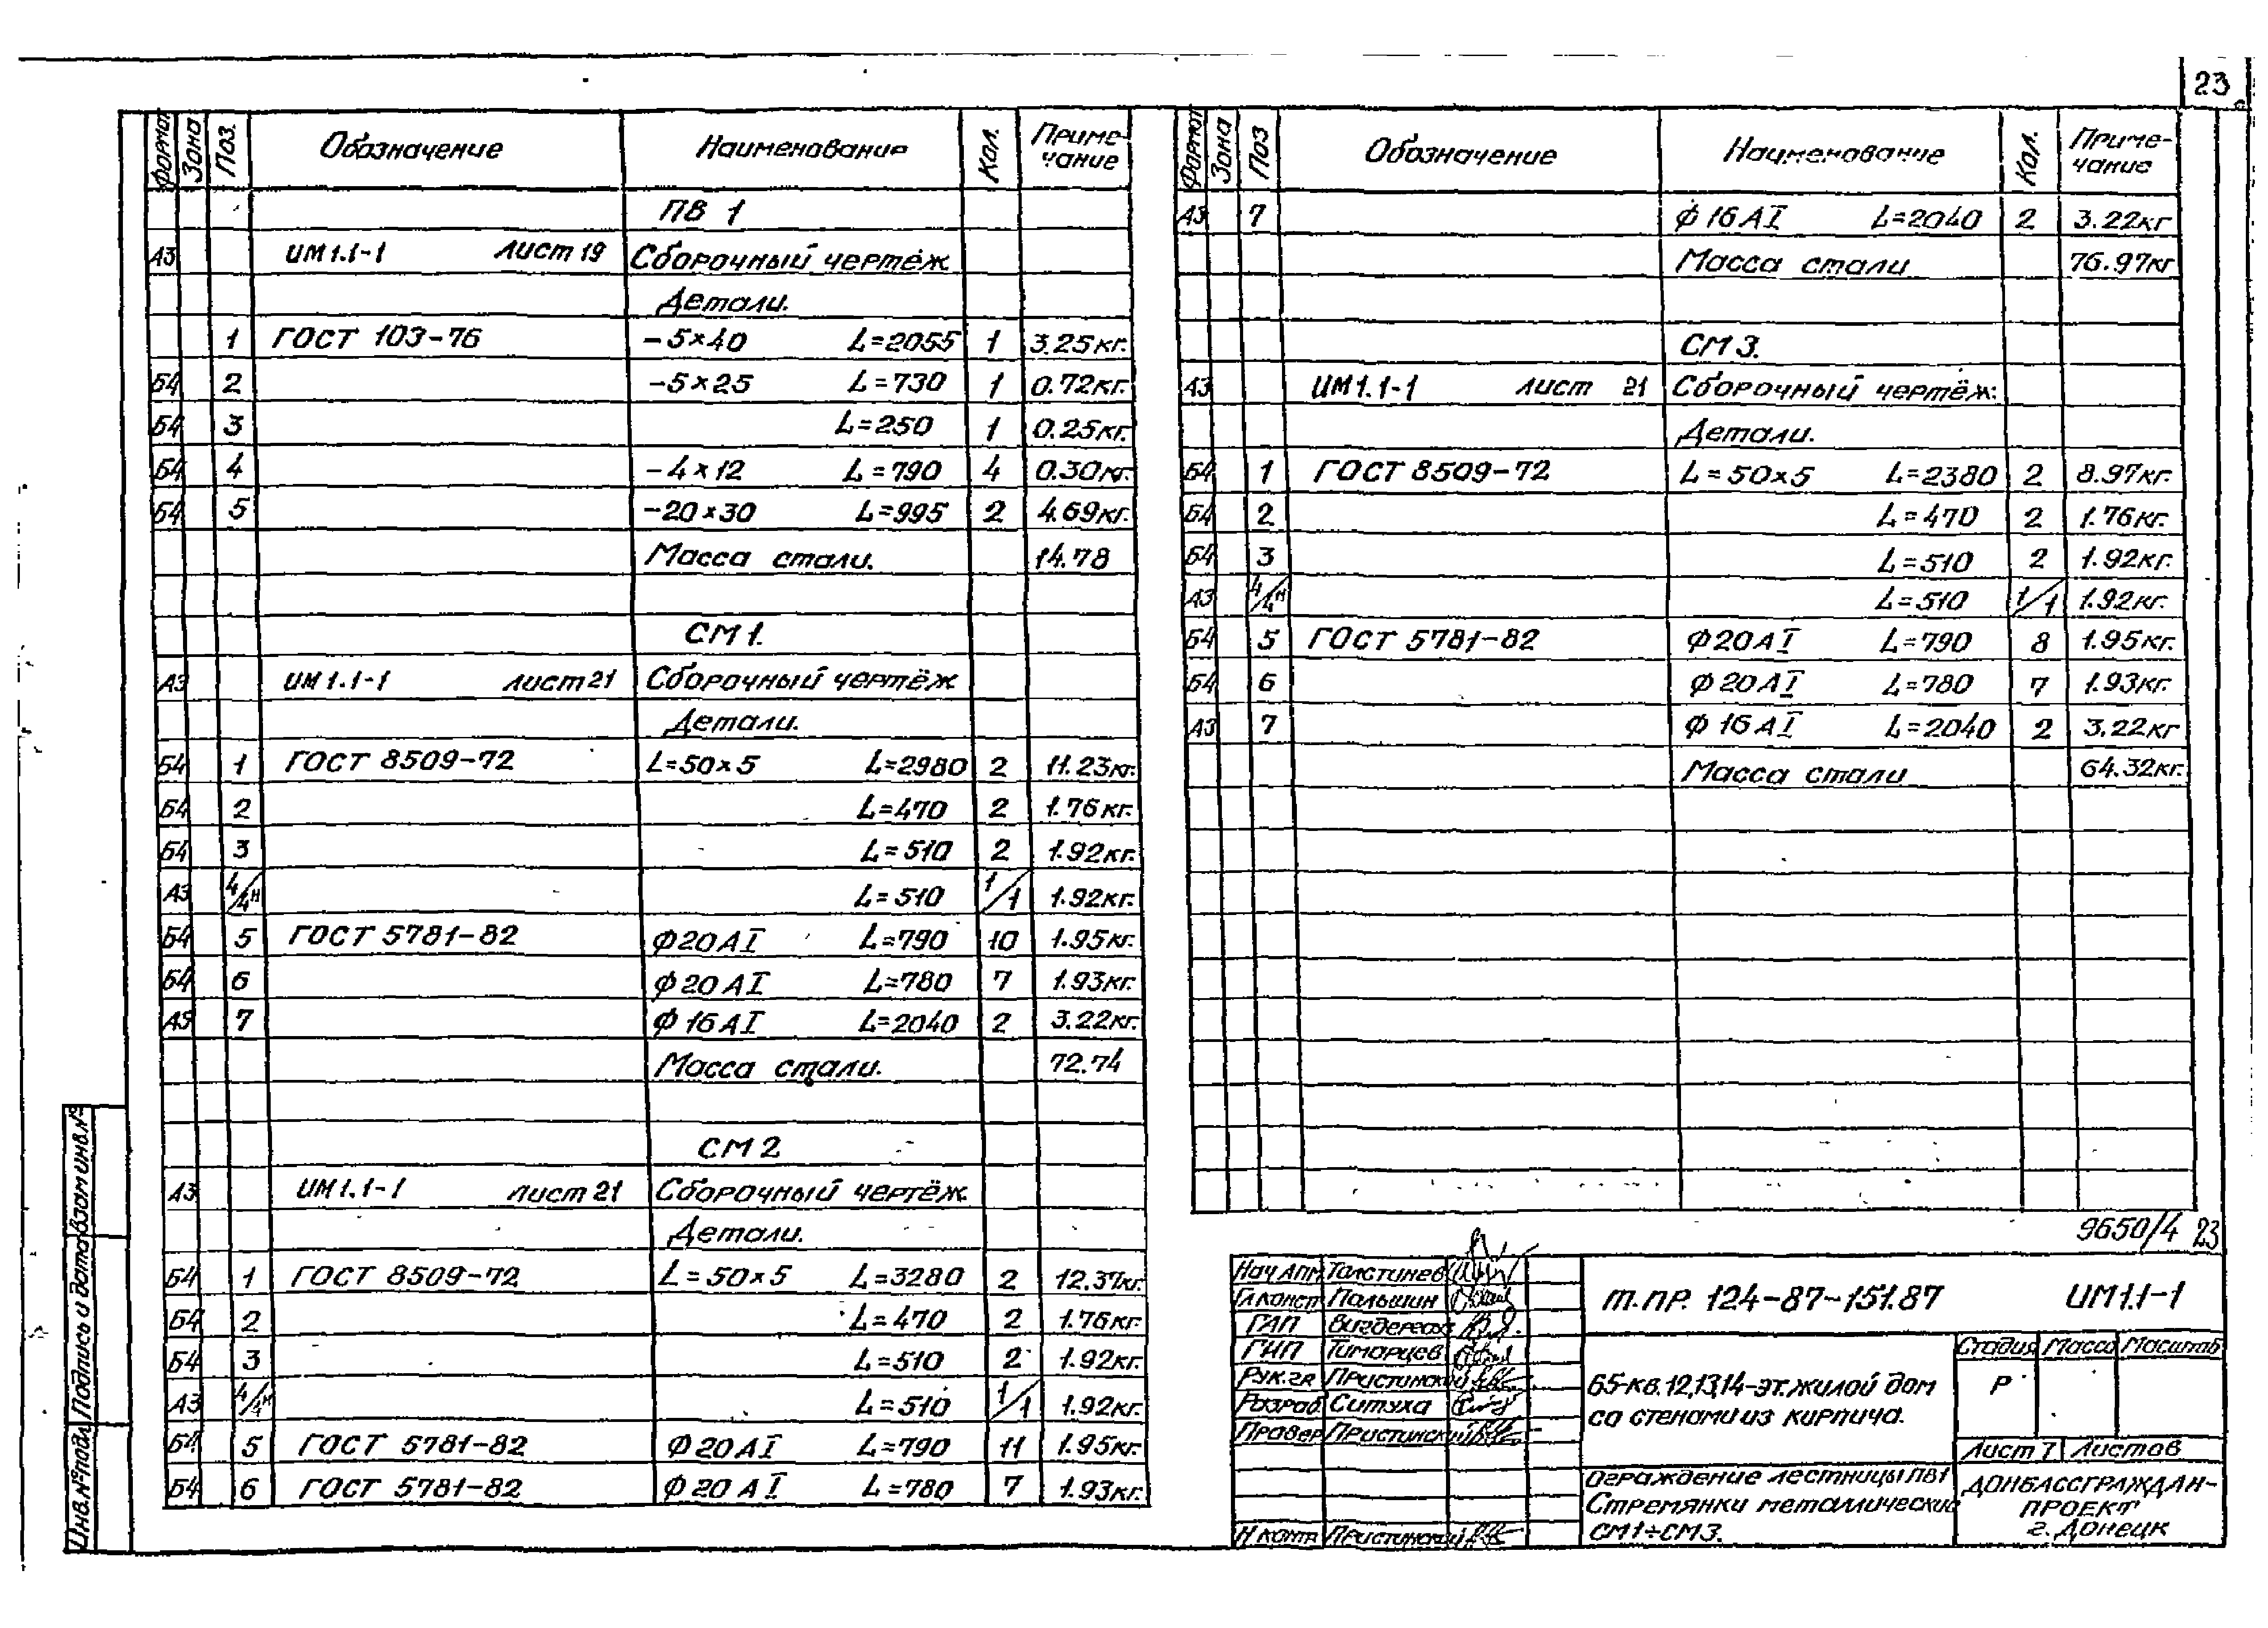 23
Формат Зона Поз. Обозначение Наименование Кол. Приме-
чание
ПВ 1
А3 ИМ 1.1-1 лист 19 Сборочный чертёж
Детали.
1 ГОСТ 103-76 -5×40 L=2055 1 3.25кг.
Б4 2 -5×25 L=730 1 0.72кг.
Б4 3 L=250 1 0.25кг.
Б4 4 -4×12 L=790 4 0.30кг.
Б4 5 -20×30 L=995 2 4.69кг.
Масса стали. 14.78
СМ 1.
А3 ИМ 1.1-1 лист 21 Сборочный чертёж
Детали.
Б4 1 ГОСТ 8509-72 L=50×5 L=2980 2 11.23кг.
Б4 2 L=470 2 1.76кг.
Б4 3 L=510 2 1.92кг.
А3 4/4н L=510 1/1 1.92кг.
Б4 5 ГОСТ 5781-82 Ф20АI L=790 10 1.95кг.
Б4 6 Ф20АI L=780 7 1.93кг.
А3 7 Ф16АI L=2040 2 3.22кг.
Масса стали. 72.74
СМ 2
А3 ИМ 1.1-1 лист 21 Сборочный чертёж
Детали.
Б4 1 ГОСТ 8509-72 L=50×5 L=3280 2 12.37кг.
Б4 2 L=470 2 1.76кг.
Б4 3 L=510 2 1.92кг.
А3 4/4н L=510 1/1 1.92кг.
Б4 5 ГОСТ 5781-82 Ф20АI L=790 11 1.95кг.
Б4 6 ГОСТ 5781-82 Ф20АI L=780 7 1.93кг.
Формат Зона Поз Обозначение Наименование Кол. Приме-
чание
А3 7 Ф16АI L=2040 2 3.22кг
Масса стали 76.97кг
СМ 3.
А3 ИМ 1.1-1 лист 21 Сборочный чертёж.
Детали.
Б4 1 ГОСТ 8509-72 L=50×5 L=2380 2 8.97кг.
Б4 2 L=470 2 1.76кг.
Б4 3 L=510 2 1.92кг.
А3 4/4н L=510 1/1 1.92кг.
Б4 5 ГОСТ 5781-82 Ф20АI L=790 8 1.95кг.
Б4 6 Ф20АI L=780 7 1.93кг.
А3 7 Ф16АI L=2040 2 3.22кг
Масса стали 64.32кг.
9650/4 23
Нач АПМ Толстинев
Гл конст Пальшин
ГАП
ГИП Тимарцев
Рук.гр Пристинский
Разраб Ситуха
Провер Пристинский
Н контр Пристинский
т.пр. 124-87-151.87 ИМ 1.1-1
65-кв.12,13,14-эт.жилой дом
со стенами из кирпича.
Стадия Масса Масштаб
Р
Лист 7 Листов
Ограждение лестницы ПВ1
Стремянки металлические
СМ1÷СМ3.
ДОНБАССГРАЖДАН-
ПРОЕКТ
г. Донецк
Инв.№подл Подпись и дата Взам инв.№